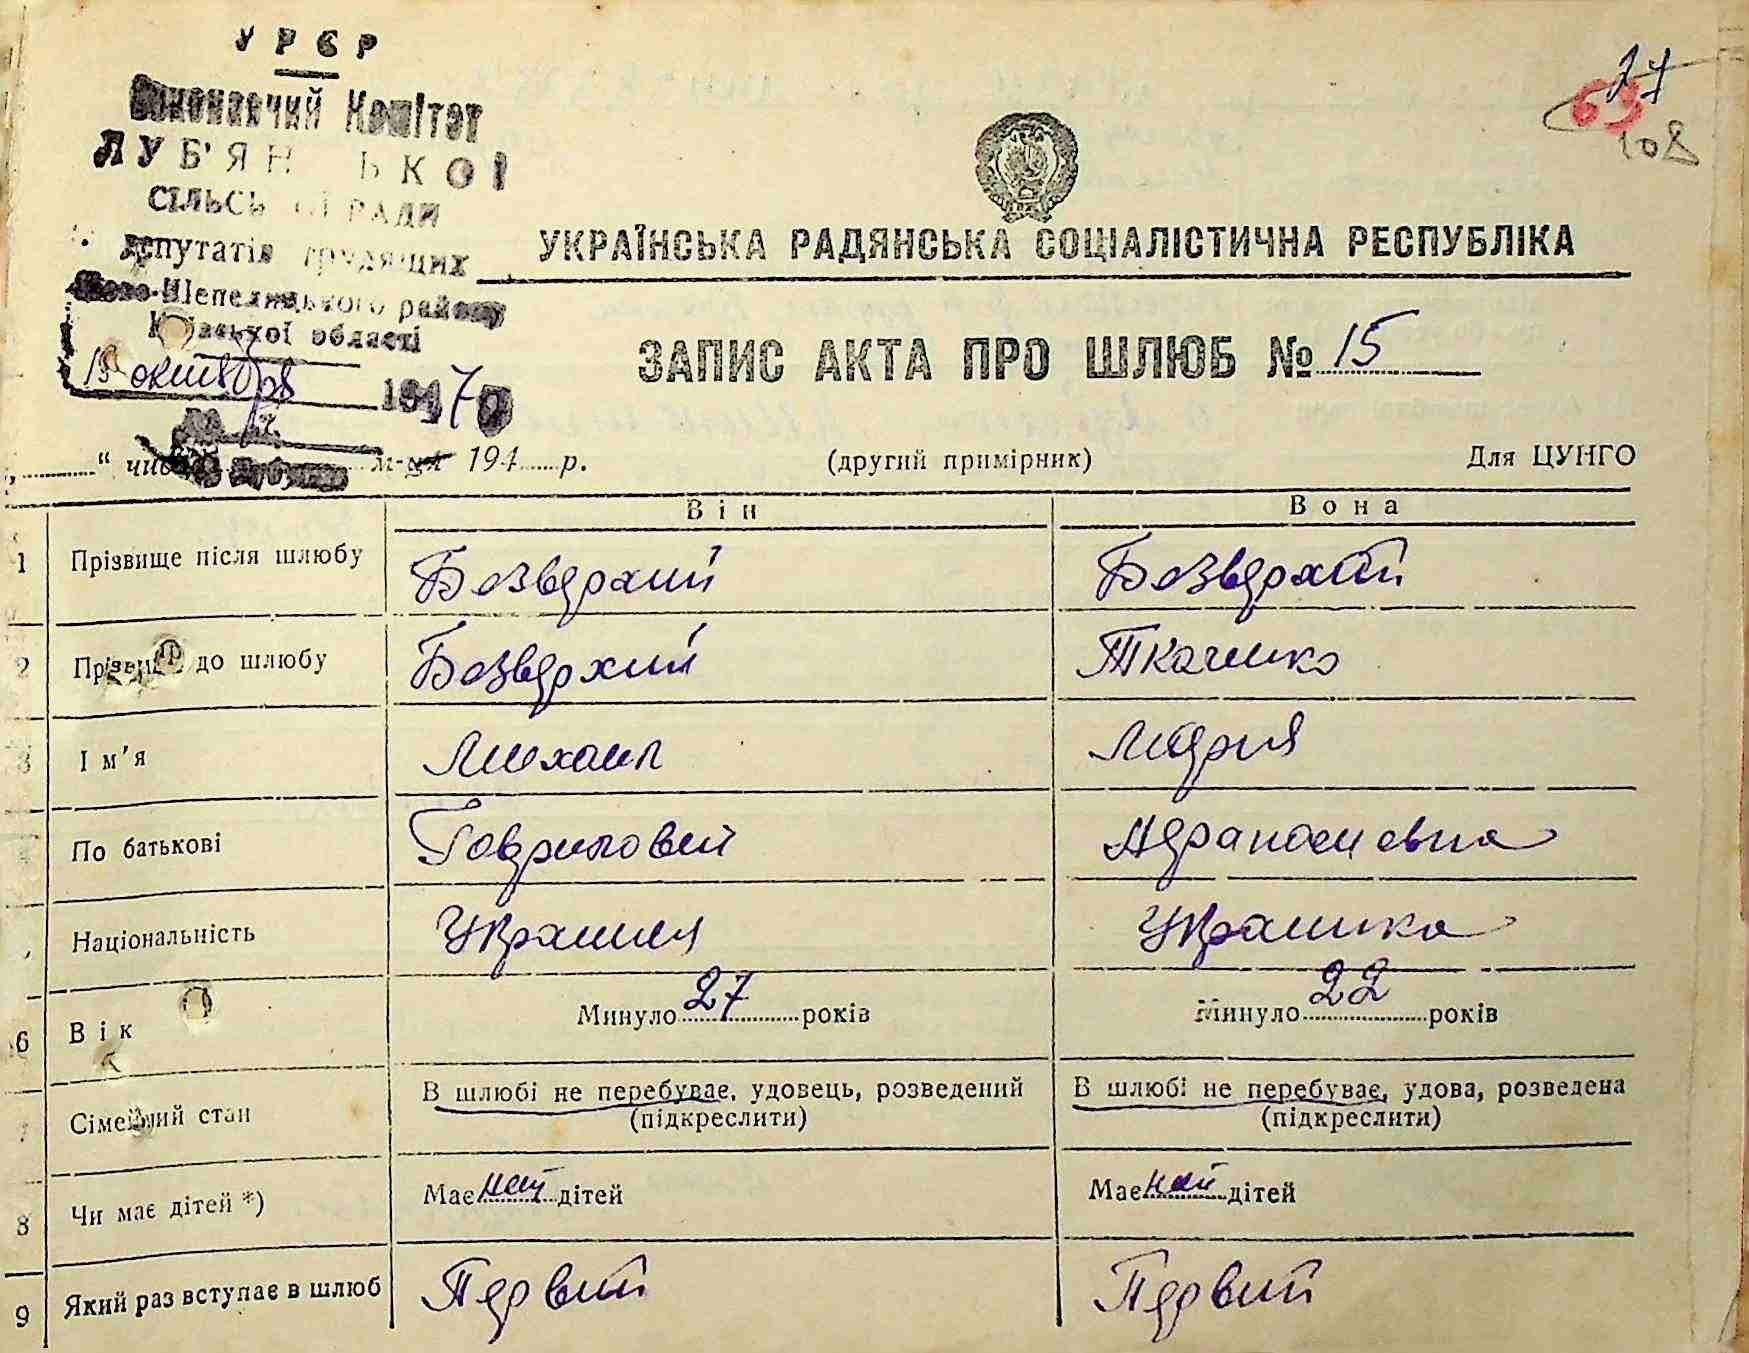 УРСР
Виконавчий Комітет
ЛУБ'ЯНСЬКОЇ
СІЛЬСЬКОЇ РАДИ
депутатів трудящих
Ново-Шепелицького району
Київської області
15 октября 1947 р
27
69
108
УКРАЇНСЬКА РАДЯНСЬКА СОЦІАЛІСТИЧНА РЕСПУБЛІКА
ЗАПИС АКТА ПРО ШЛЮБ № 15
„ “ числа м-ця 194 р. (другий примірник) Для ЦУНГО
Він Вона
1 Прізвище після шлюбу Безверхий Безверхой
2 Прізвище до шлюбу Безверхий Ткаченко
3 Ім'я Михаил Мария
4 По батькові Гаврилович Афанасиевна
Національність Украинец Украинка
6 Вік Минуло 27 років Минуло 22 років
7 Сімейний стан В шлюбі не перебуває, удовець, розведений В шлюбі не перебуває, удова, розведена
(підкреслити) (підкреслити)
8 Чи має дітей *) Має нет дітей Має нет дітей
9 Який раз вступає в шлюб Первий Первий